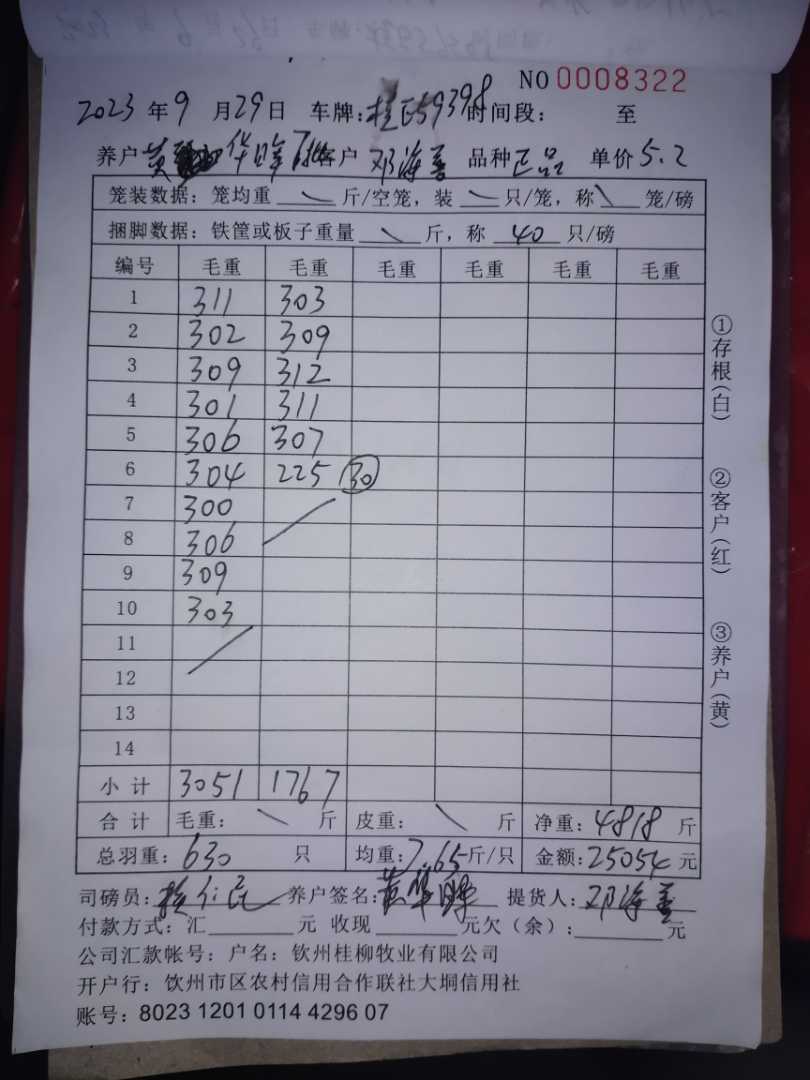 NO 0008322
2023 年 9 月 29 日 车牌: 桂 59398 时间段: 至
养户 黄 华 客户 邓海善 品种 正品 单价 5.2
笼装数据: 笼均重 \ 斤/空笼, 装 \ 只/笼, 称 \ 笼/磅
捆脚数据: 铁筐或板子重量 \ 斤, 称 40 只/磅
编号 毛重 毛重 毛重 毛重 毛重 毛重
1 311 303
2 302 309
3 309 312
4 301 311
5 306 307
6 304 225 30
7 300
8 306
9 309
10 303
11
12
13
14
小计 3051 1767
合计 毛重: \ 斤 皮重: \ 斤 净重: 4818 斤
总羽重: 630 只 均重: 7.65 斤/只 金额: 25054 元
司磅员: 养户签名: 黄华 提货人: 邓海善
付款方式: 汇 元 收现 元欠(余): 元
公司汇款帐号: 户名: 钦州桂柳牧业有限公司
开户行: 钦州市区农村信用合作联社大垌信用社
账号: 8023 1201 0114 4296 07
①存根(白)
②客户(红)
③养户(黄)